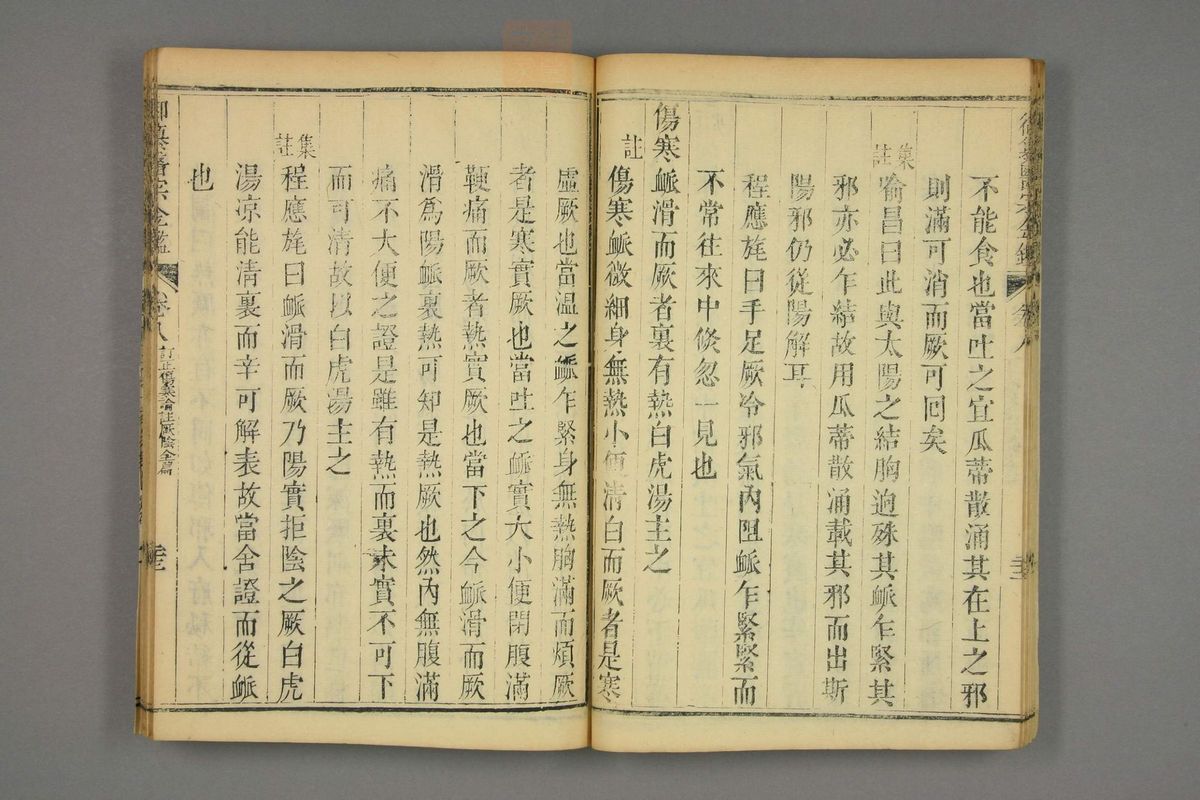 不能食也當吐之宜瓜蒂散涌其在上之邪
則滿可消而厥可回矣
集註
喻昌曰此與太陽之結胸逈殊其脈乍緊其
邪亦必乍結故用瓜蒂散涌載其邪而出斯
陽邪仍從陽解耳
程應旄曰手足厥冷邪氣內阻脈乍緊緊而
不常往來中倏忽一見也
傷寒脈滑而厥者裏有熱白虎湯主之
註
傷寒脈微細身無熱小便清白而厥者是寒
虛厥也當温之脈乍緊身無熱胸滿而煩厥
者是寒實厥也當吐之脈實大小便閉腹滿
鞕痛而厥者熱實厥也當下之今脈滑而厥
滑爲陽脈裏熱可知是熱厥也然內無腹滿
痛不大便之證是雖有熱而裏未實不可下
而可清故以白虎湯主之
集註
程應旄曰脈滑而厥乃陽實拒陰之厥白虎
湯凉能清裏而辛可解表故當舍證而從脈
也
御纂醫宗金鑑
卷八
訂正傷寒論註厥陰全篇